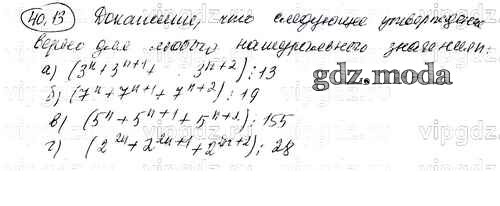 40,13 Докажите, что следующее утверждение
верно для любого натурального значения n:
а) (3ⁿ+3ⁿ⁺¹+ 3ⁿ⁺²) ⋮ 13
gdz.moda
б) (7ⁿ+7ⁿ⁺¹+7ⁿ⁺²) ⋮ 19
в) (5ⁿ+5ⁿ⁺¹+5ⁿ⁺²) ⋮ 155
г) (2²ⁿ+2²ⁿ⁺¹+2²ⁿ⁺²) ⋮ 28